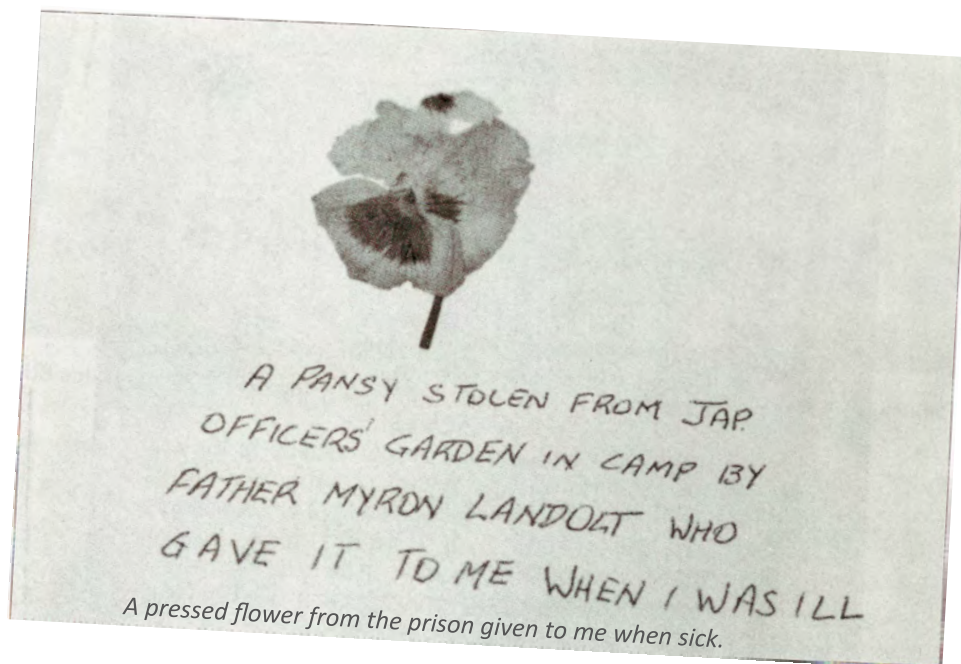 A PANSY STOLEN FROM JAP.
OFFICERS' GARDEN IN CAMP BY
FATHER MYRON LANDOLT WHO
GAVE IT TO ME WHEN I WAS ILL
A pressed flower from the prison given to me when sick.